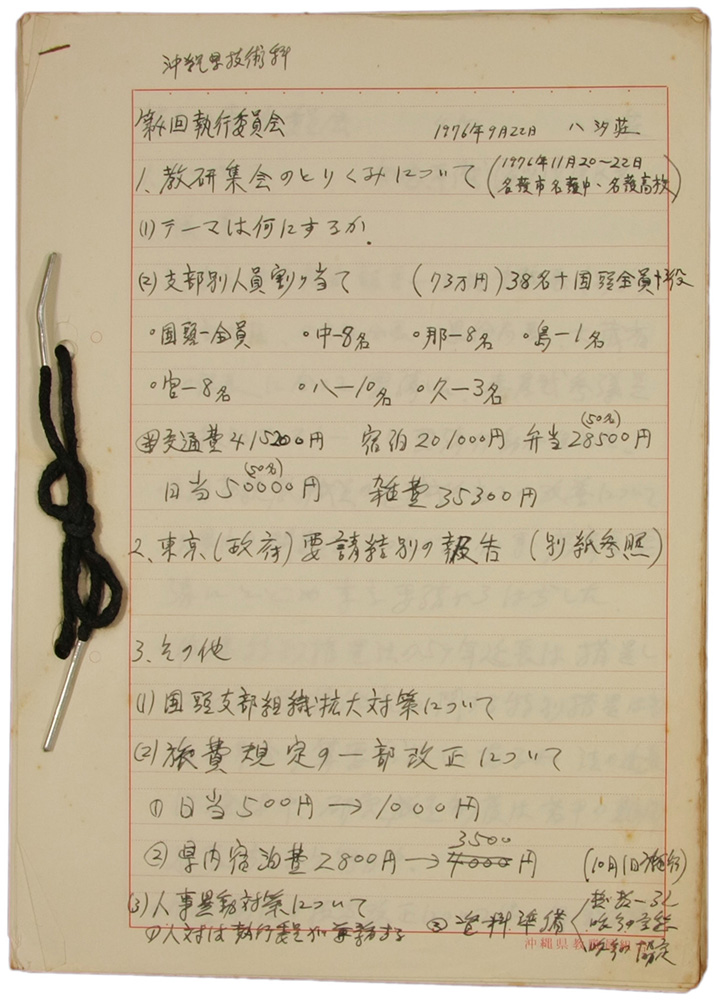 沖縄県技術科
第4回執行委員会 1976年9月22日 八汐荘
1、教研集会のとりくみについて (1976年11月20〜22日
名護市名護中・名護高校)
(1)テーマは何にするか。
(2)支部別人員割り当て (73万円)38名+国頭全員+役
・国頭一全員 ・中一8名 ・那一8名 ・島一1名
・宮一8名 ・八一10名 ・久一3名
交通費415200円 宿泊201000円 弁当28500円
(50名)
(50名)
日当50000円 雑費35300円
2、東京(政府)要請結別の報告 (別紙参照)
3、その他
(1)国頭支部組織拡大対策について
(2)旅費規定の一部改正について
① 日当500円→1000円
3500
② 県内宿泊費2800円→4000円 (10月1日施行)
(3)人事異動対策について
①人対は執行委員が兼務する ② 資料準備
沖縄県教
協定